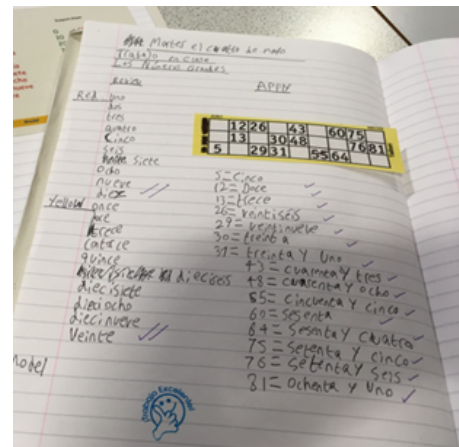 Martes el cuatro de mayo
Trabajo en clase
Los Números Grandes
Review
APPN
Red uno
dos
tres
cuatro
Cinco
Seis
Siete
Ocho
nueve
diez
Yellow once
doce
trece
catorce
quince
dieciseis
diecisiete
dieciocho
diecinueve
Veinte
12 26 43 60 75
13 30 48 76 81
5 29 31 55 64
5 = Cinco
12 = Doce
13 = trece
26 = veintiséis
29 = veintinueve
30 = treinta
31 = treinta y uno
43 = cuarenta y tres
48 = cuarenta y ocho
55 = cincuenta y cinco
60 = Sesenta
64 = Sesenta y cuatro
75 = Setenta y cinco
76 = Setenta y seis
81 = Ochenta y Uno
Model
¡Trabajo Excelente!